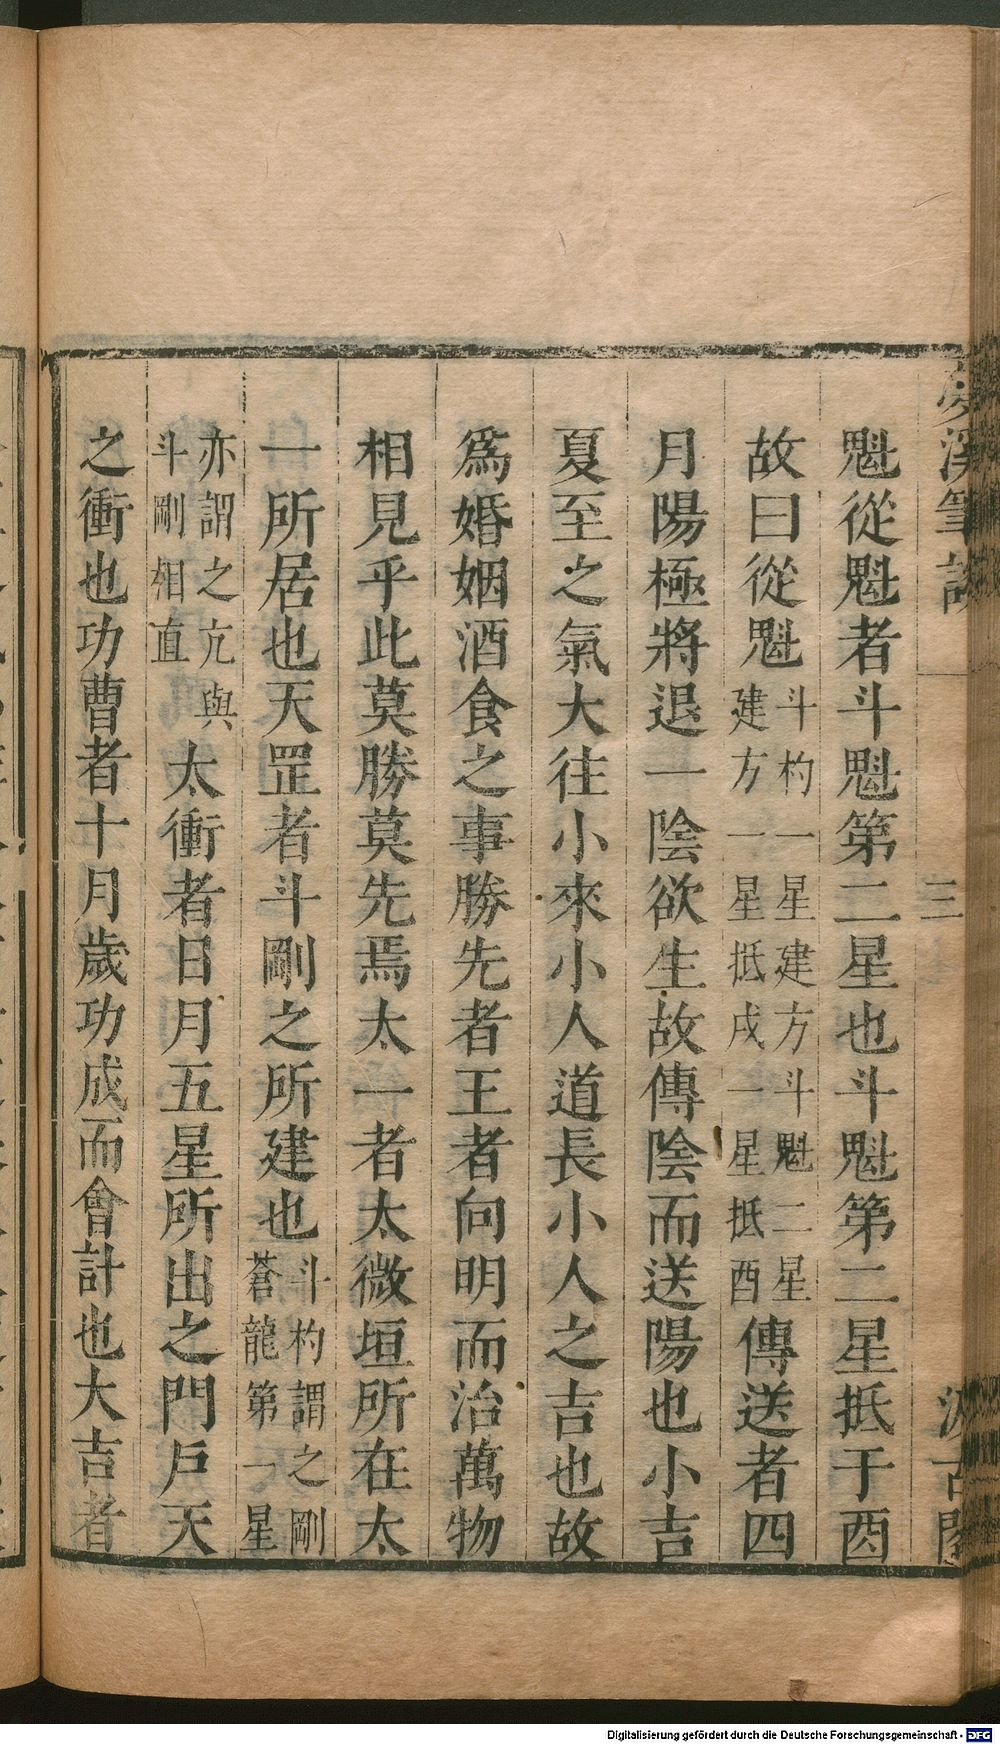 魁從魁者斗魁第二星也斗魁第二星抵于酉
故曰從魁斗杓一星建方斗魁二星建方一星抵戌一星抵酉傳送者四
月陽極將退一陰欲生故傳陰而送陽也小吉
夏至之氣大往小來小人道長小人之吉也故
爲婚姻酒食之事勝先者王者向明而治萬物
相見乎此莫勝莫先焉太一者太微垣所在太
一所居也天罡者斗剛之所建也斗杓謂之剛蒼龍第一星
亦謂之亢與斗剛相直太衝者日月五星所出之門戶天
之衝也功曹者十月歲功成而會計也大吉者
夢溪筆談
三
汲古閣
Digitalisierung gefördert durch die Deutsche Forschungsgemeinschaft - DFG